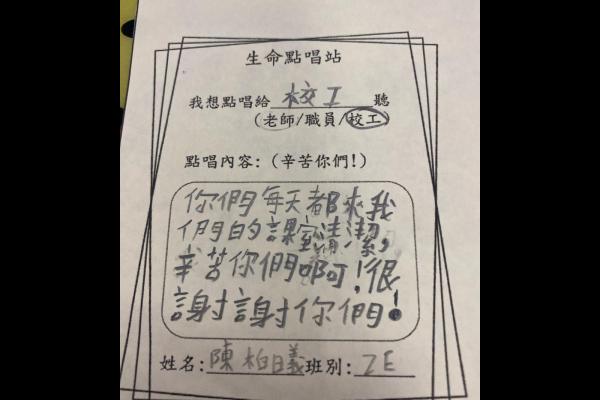 生命點唱站
我想點唱給校工聽
(老師/職員/校工)
點唱內容:(辛苦你們!)
你們每天都來我
們的課室清潔,
辛苦你們啊!很
謝謝你們!
姓名:陳柏曦班別:2E